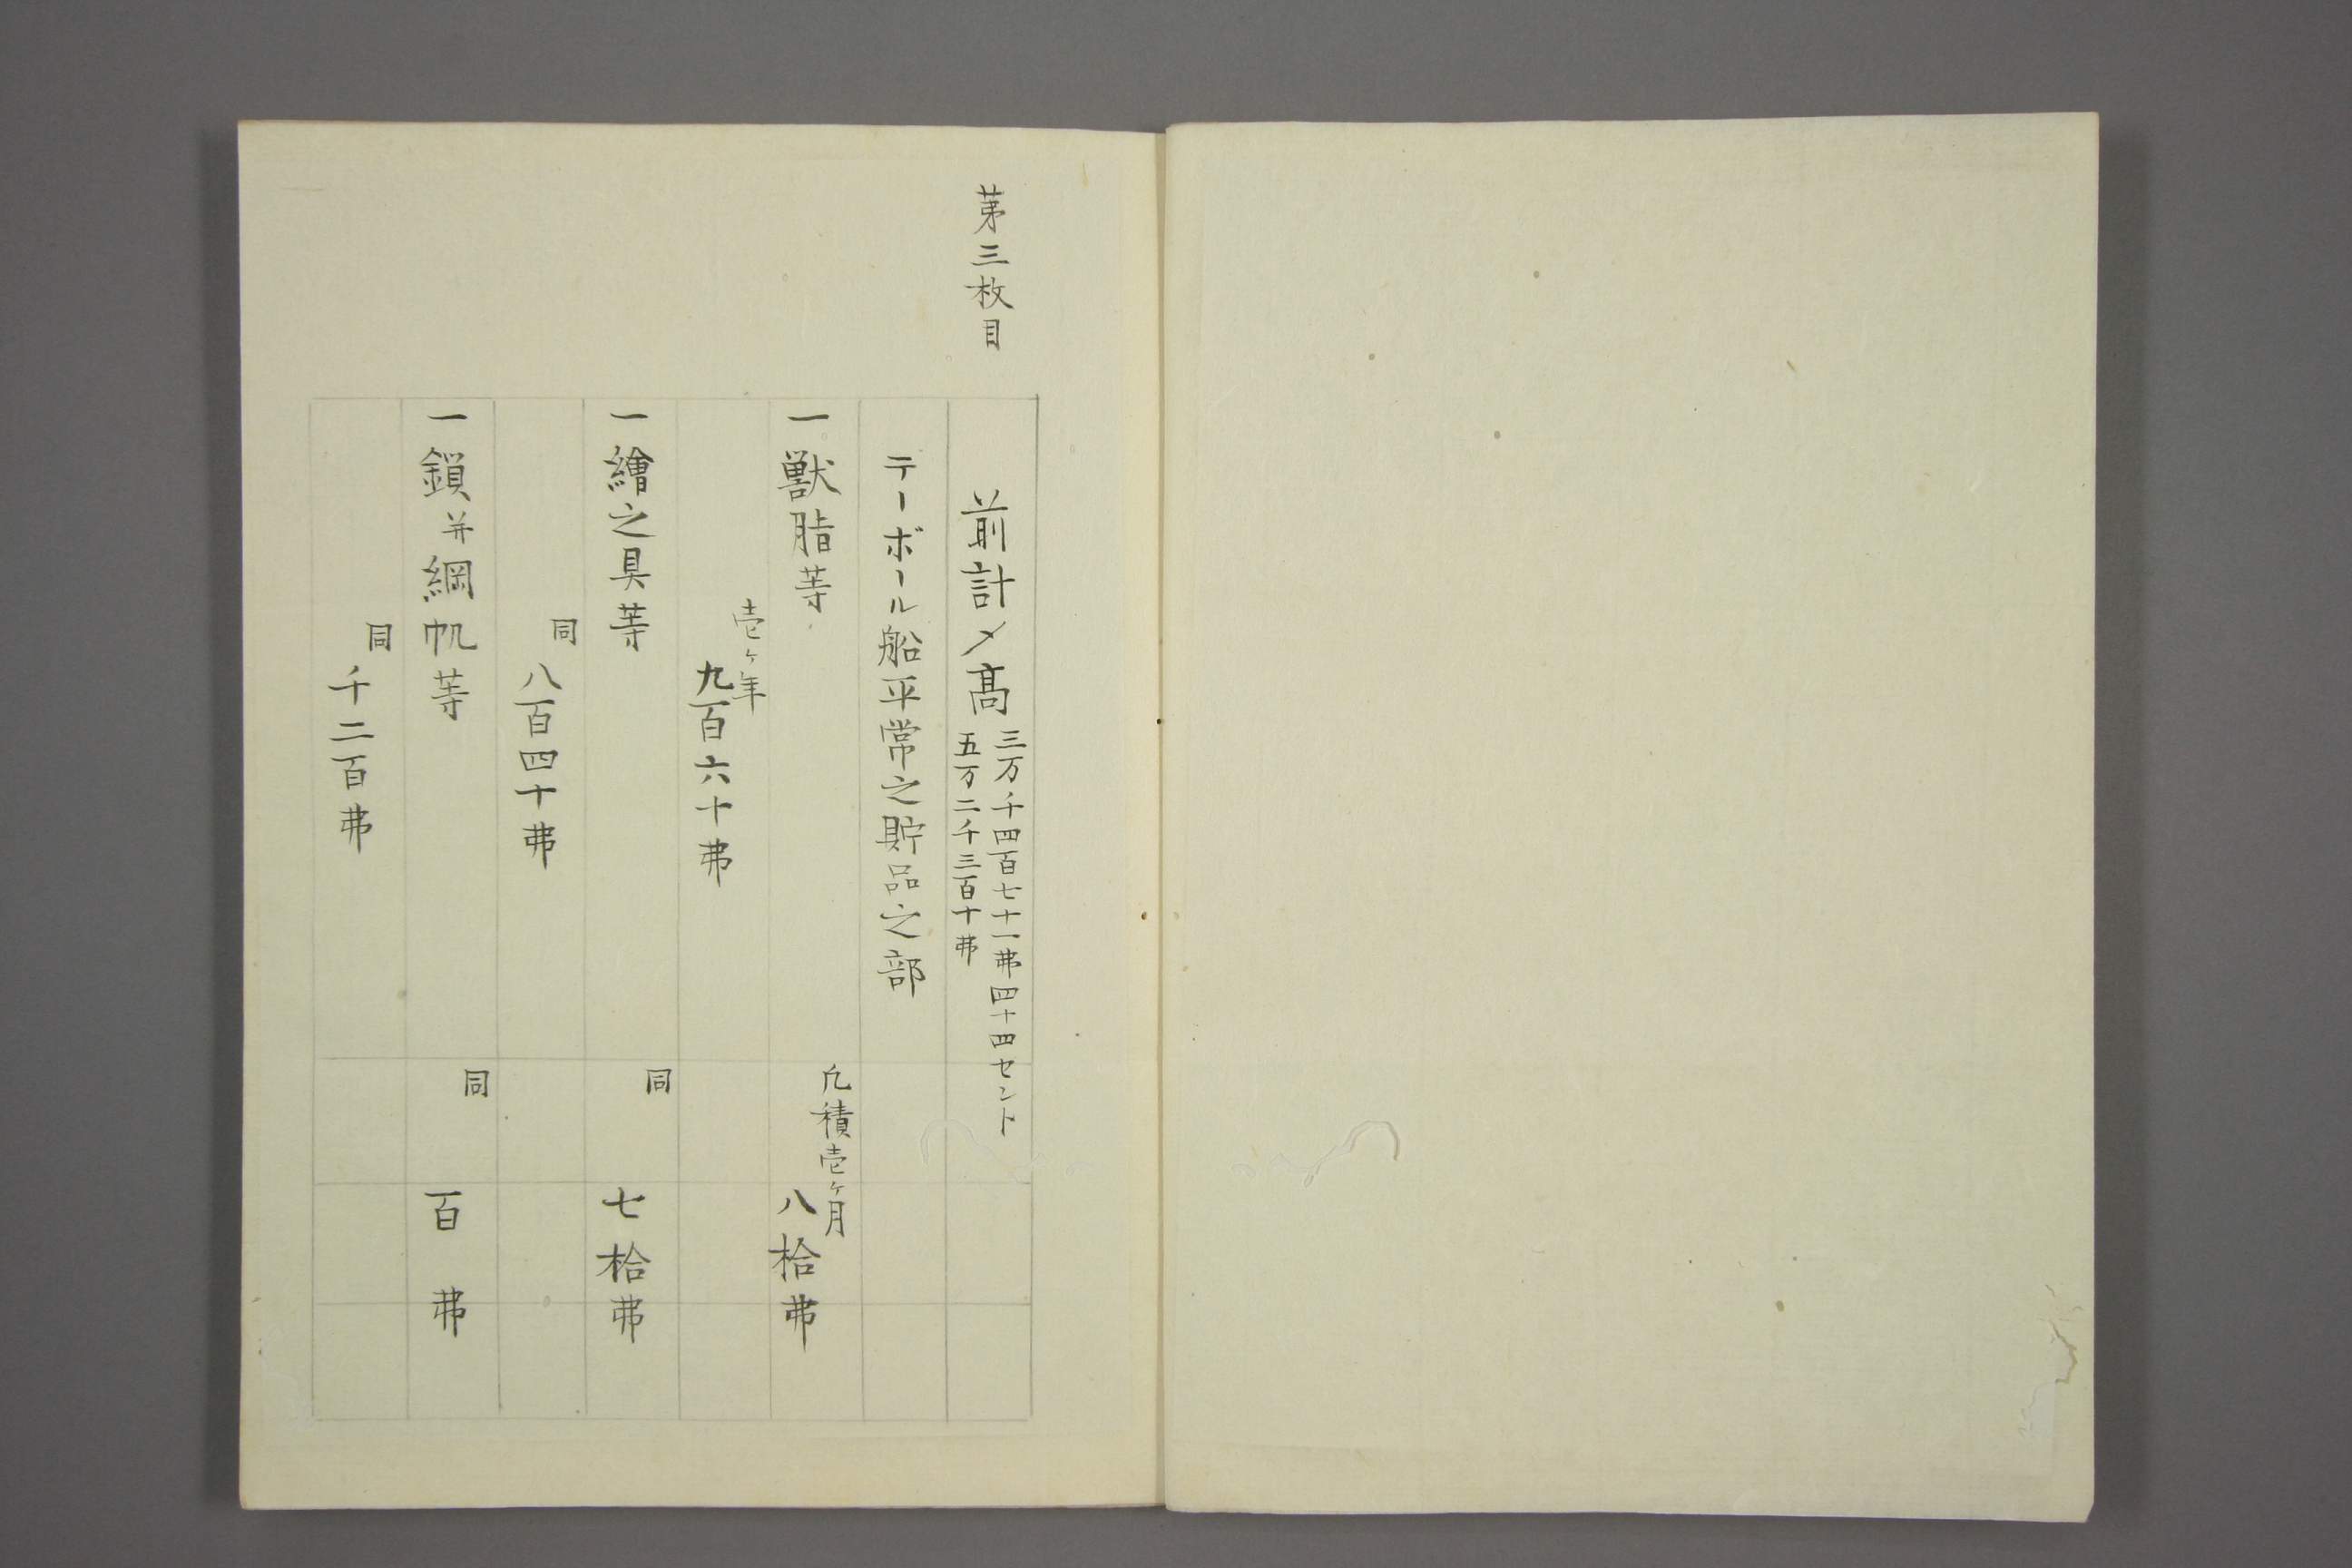 第三枚目
前計〆高
三万千四百七十一弗四十四セント
五万二千三百十弗
テーボール船平常之貯品之部
一獣脂等
凡積壱ヶ月
八拾弗
壱ヶ年
九百六十弗
一繪之具等
同
七拾弗
同
八百四十弗
一鎖并綱帆等
同
百弗
同
千二百弗